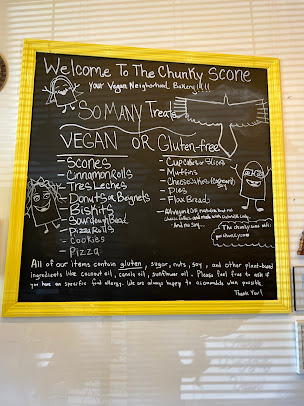 Welcome To The Chunky Scone
Your Vegan Neighborhood Bakery!!!!
So Many Treats
VEGAN OR Gluten-free
- Scones
- Cinnamon Rolls
- Tres Leches
- Donuts or Beignets
- Biskits
- Sourdough Bread
- Pizza Rolls
- Cookies
- Pizza
- Cupcakes or Slices
- Muffins
- Cheesecakes
- Pies
- Flax Bread
All of our items contain gluten, sugar, nuts, soy, and other plant-based
ingredients like coconut oil, canola oil, sunflower oil. Please feel free to ask if
you have an specific food allergy. We are always happy to accommodate when possible.
Thank You!